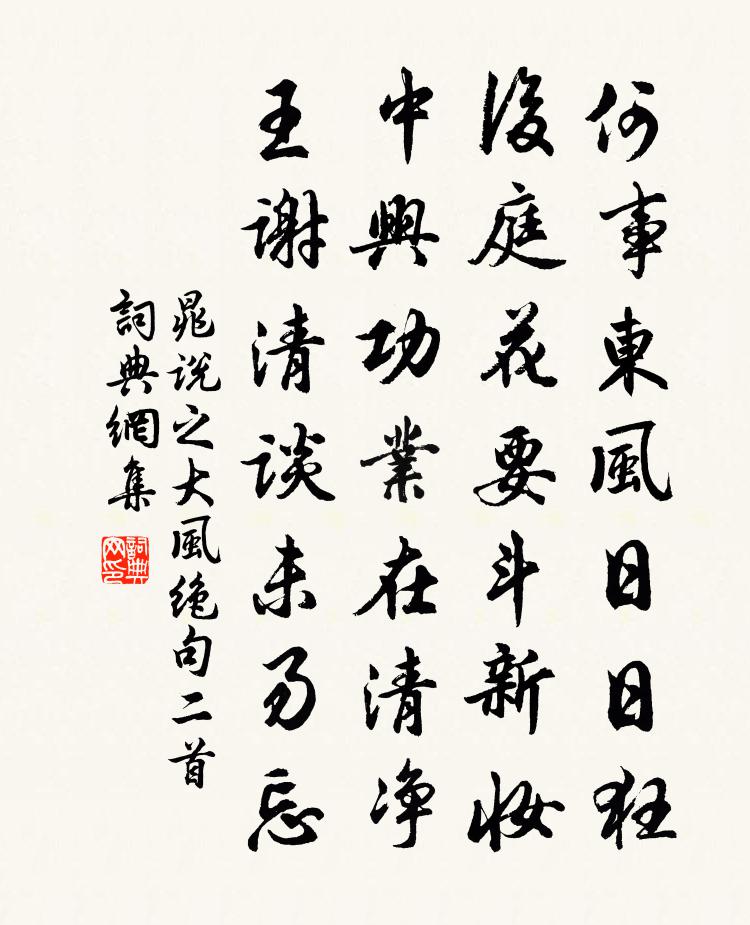 何事東風日日狂
後庭花要斗新妝
中興功業在清净
王謝清談未易忘
晁说之大風絶句二首
詞典網集
詞典網印